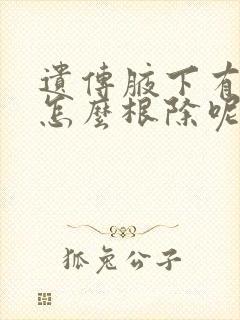 遺傳腋下有
怎麼根除呢
狐兔公子